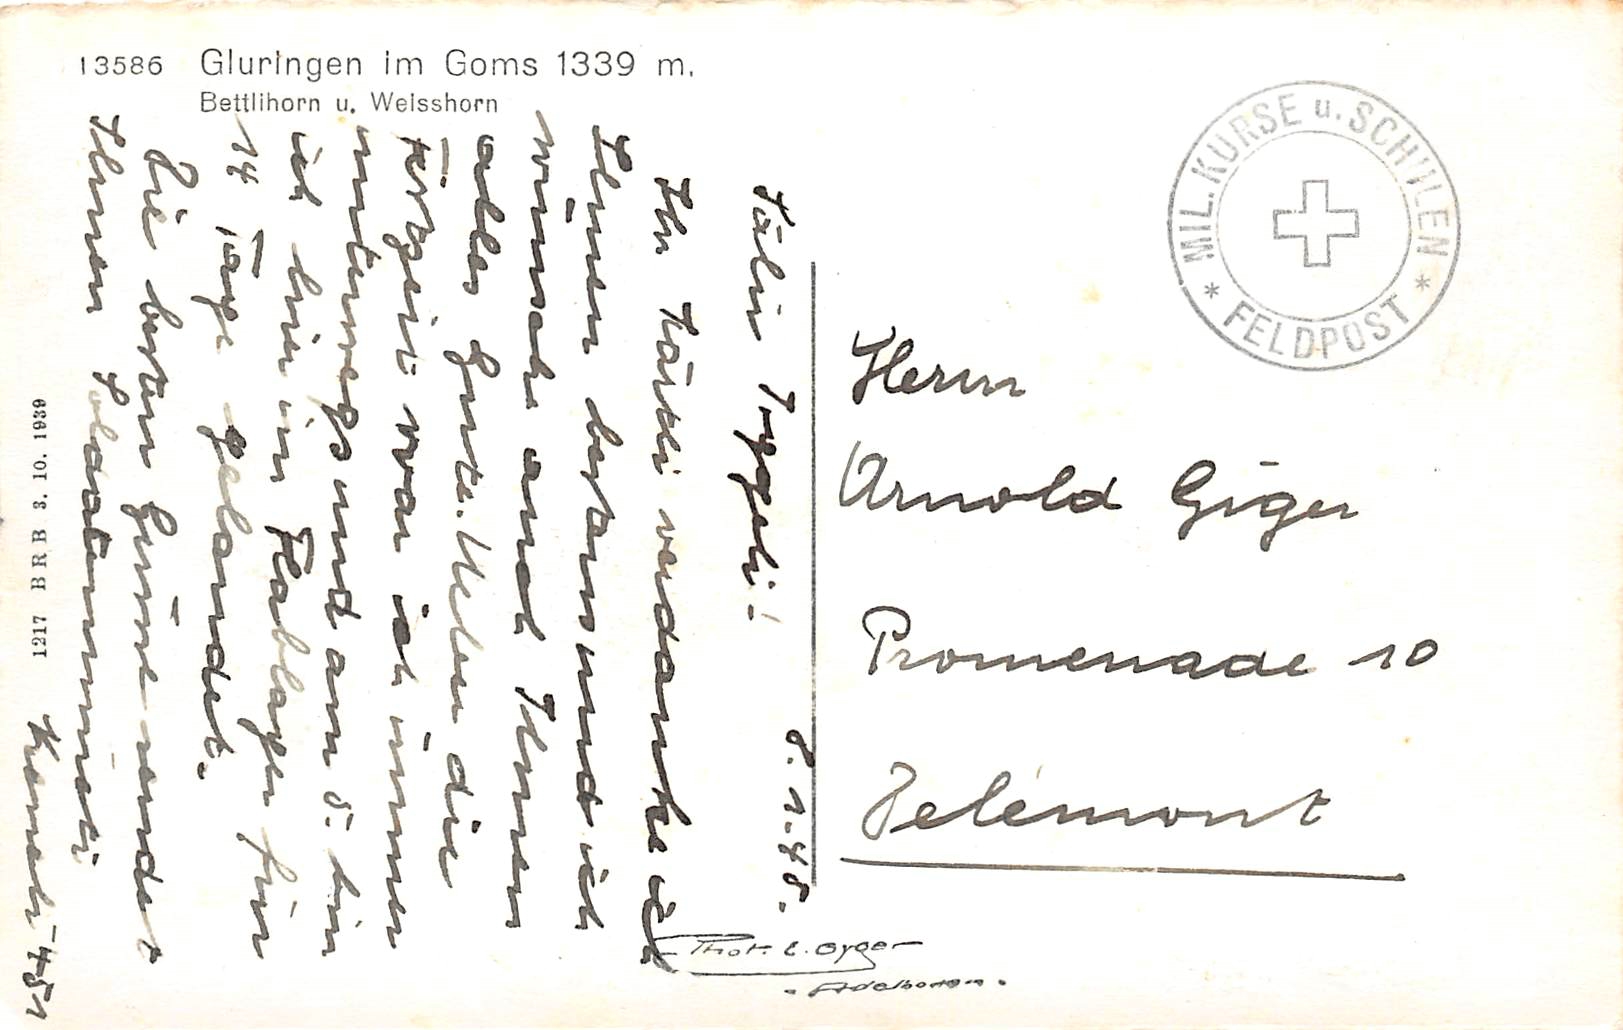 13586 Gluringen im Goms 1339 m.
Bettlihorn u. Weisshorn
MIL. KURSE u. SCHULEN
* FELDPOST *
8.1.45.
Ihr Kärtli verdanke ich
Ihnen bestens und ich
wünsche auch Ihnen
alles Gute. Ueber die
Festzeit war ich immer
unterwegs und am 5. bin
ich hier im Flablager für
14 Tage gelandet.
Die besten Grüsse sendet
Ihnen
Herrn
Arnold Giger
Promenade 10
Delémont
1217 BRB 3. 10. 1939
Phot. E. Gyger
Adelboden.